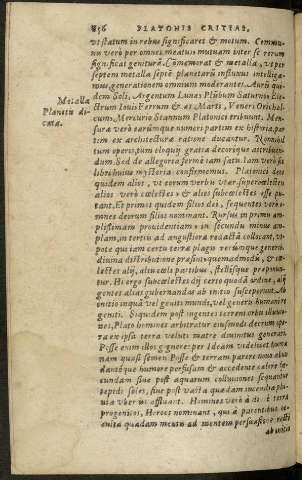 856 PLATONIS CRITIAS,
vt statum in rebus significaret & motum. Commu-
nem verò per omnes meatum mutuam inter se rerum
significat genituram. Cõmemorat & metalla, vt per
septem metalla septẽ planetarũ influxus intelliga-
mus, generationem omnium moderantes. Auri qui-
dem Soli, Argentum Lunæ: Plũbum Saturni: Ele-
ctrum Ioui: Ferrum & æs Marti, Veneri Orichal-
cum, Mercurio Stannum Platonici tribuunt. Men-
Metalla
Planetis di-
cata.
sura verò earũmque numeri partim ex historia, par-
tim ex architectura ratione ducantur. Nonnulla
tum operis, tum eloquij gratia decorique attribuen-
dum. Sed de allegoria fermè iam satu. Iam verò sic
libet huius mysteria confirmemus. Platonici deos
quidem alios, vt eorum verbis vtar supercœlestes
alios verò cœlestes: & alios subcœlestes esse pu-
tant. Et primos quidem filios dei, sequentes verò o-
mnes deorum filios nominant. Rursus in primis am-
plissimam prouidentiam: in secundis minus am-
plam, in tertiis ad angustiora redactã collocant, vt-
pote qui iam certæ terræ plagæ rerúmque generi,
diuina distributione præsint: quemadmodũ, & cœ-
lestes alij, aliis cœli partibus, stellisque præponun-
tur. Hi ergo subcœlestes dij certo quodã ordine, ali-
gentes alias gubernandas ab initio susceperunt.
initio inquã vel geniti mundi, vel generis humani re
geniti. Siquidem post ingentes terrem orbis illuuio-
nes, Plato homines arbitratur eiusmodi deorum ope-
ra ex ipsa terra veluti matre diuinitus generari.
Posse enim illos generare per Ideam videlicet huma
nam quasi semen: Posse & terram parere nouo aliu
dantóque humore perfusam & accedente calore fœ-
cundam siue post aquarum colluuiones sequantur
tepidi soles, siue post vasta quædam incendia plu-
uia vber sit affluant. Homines verò à dis è terra
progenitos, Heroes nominant, qui à parentibus
quadam mentis ad mentem persuasione recti
ab initio